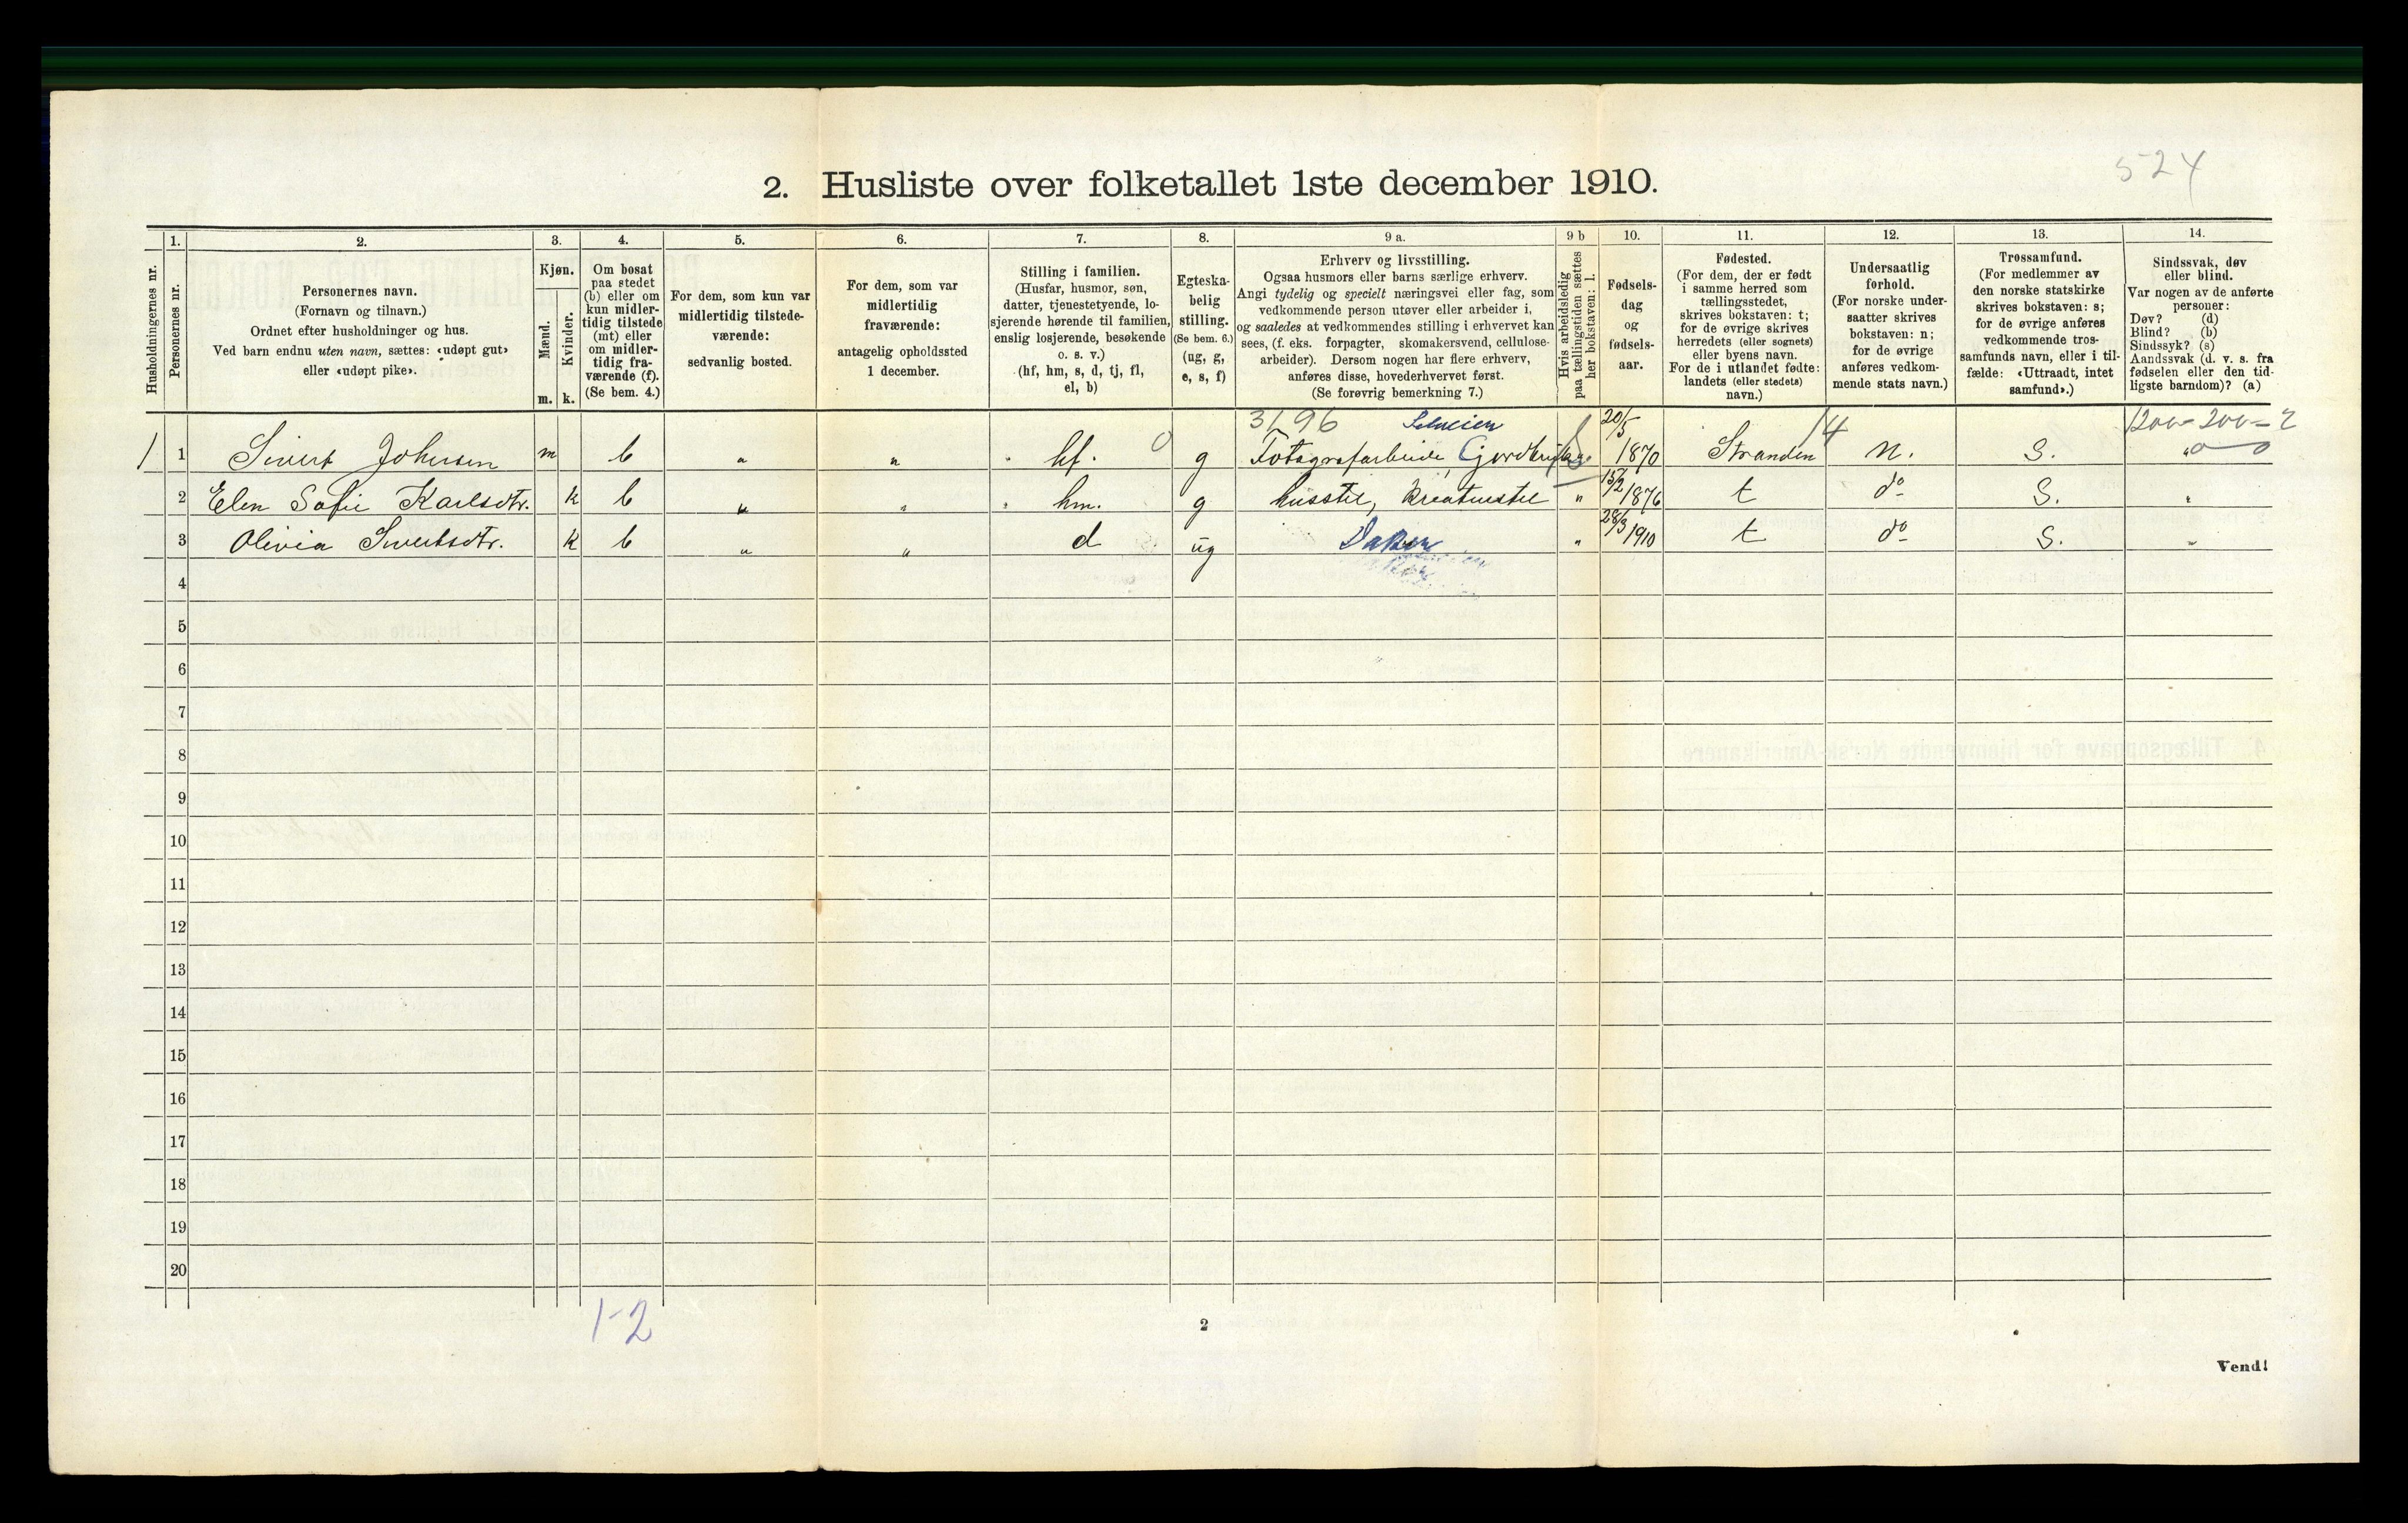 524
2. Husliste over folketallet 1ste december 1910.
Husholdningernes nr.
1.
Personernes nr.
2.
Personernes navn.
(Fornavn og tilnavn.)
Ordnet efter husholdninger og hus.
Ved barn endnu uten navn, sættes: «udøpt gut»
eller «udøpt pike».
3.
Kjøn.
Mænd.
Kvinder.
m. k.
4.
Om bosat
paa stedet
(b) eller om
kun midler-
tidig tilstede
(mt) eller
om midler-
tidig fra-
værende (f).
(Se bem. 4.)
5.
For dem, som kun var
midlertidig tilstede-
værende:
sedvanlig bosted.
6.
For dem, som var
midlertidig
fraværende:
antagelig opholdssted
1 december.
7.
Stilling i familien.
(Husfar, husmor, søn,
datter, tjenestetyende, lo-
sjerende hørende til familien,
enslig losjerende, besøkende
o. s. v.)
(hf, hm, s, d, tj, fl,
el, b)
8.
Egteska-
belig
stilling.
(Se bem. 6.)
(ug, g,
e, s, f)
9 a.
Erhverv og livsstilling.
Ogsaa husmors eller barns særlige erhverv.
Angi tydelig og specielt næringsvei eller fag, som
vedkommende person utøver eller arbeider i,
og saaledes at vedkommendes stilling i erhvervet kan
sees, (f. eks. forpagter, skomakersvend, cellulose-
arbeider). Dersom nogen har flere erhverv,
anføres disse, hovederhvervet først.
(Se forøvrig bemerkning 7.)
9 b
Hvis arbeidsledig
paa tællingstiden sættes
her bokstaven: l.
10.
Fødsels-
dag
og
fødsels-
aar.
11.
Fødested.
(For dem, der er født
i samme herred som
tællingsstedet,
skrives bokstaven: t;
for de øvrige skrives
herredets (eller sognets)
eller byens navn.
For de i utlandet fødte:
landets (eller stedets)
navn.)
12.
Undersaatlig
forhold.
(For norske under-
saatter skrives
bokstaven: n;
for de øvrige
anføres vedkom-
mende stats navn.)
13.
Trossamfund.
(For medlemmer av
den norske statskirke
skrives bokstaven: s;
for de øvrige anføres
vedkommende tros-
samfunds navn, eller i til-
fælde: «Uttraadt, intet
samfund».)
14.
Sindssvak, døv
eller blind.
Var nogen av de anførte
personer:
Døv? (d)
Blind? (b)
Sindssyk? (s)
Aandssvak (d. v. s. fra
fødselen eller den tid-
ligste barndom)? (a)
3196 14 1200-200-2
1 1 Sivert Johnsen m b " " hf. 0 g Fotografarbeide, 20/5 1870 Stranden n. S. "
2 Elen Sofie Karlsdtr. k b " " hm. g husstel, kreaturstel " 15/2 1876 t do S. "
3 Olivia Sivertsdtr. k b " " d ug " 28/3 1910 t do S. "
4
5
6
7
8
9
10
11
12
13
14
15
16
17
18
19
20
1-2
2
Vend!